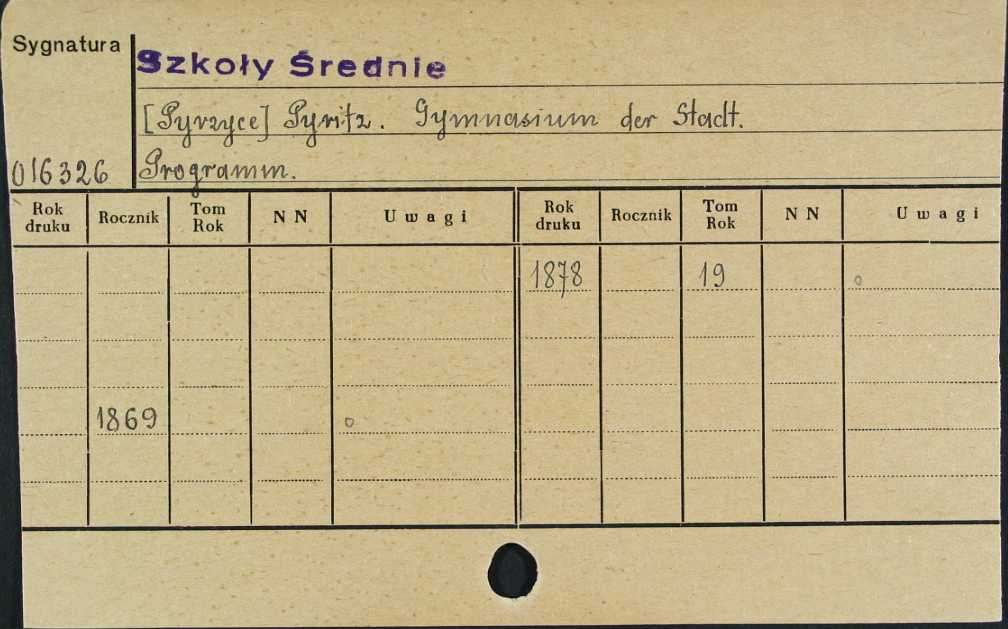 Sygnatura
Szkoły Średnie
[Pyrzyce] Pyritz. Gymnasium der Stadt.
016326 Programm.
Rok druku Rocznik Tom Rok N N Uwagi Rok druku Rocznik Tom Rok N N Uwagi
1878 19 o
1869 o